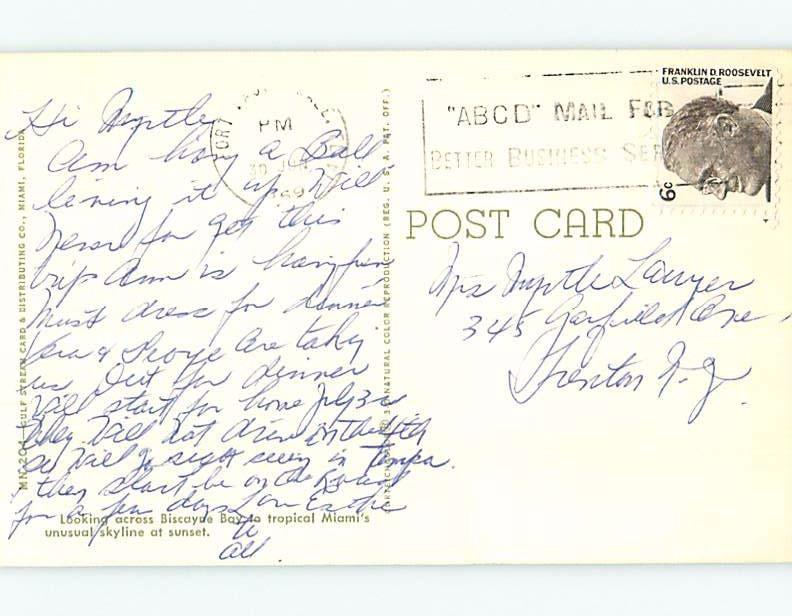 Hi Myrtle
Am having a Ball
living it up Will
Never for get this
trip Ann is having fun
Must dress for dinner
Vera & George are taking
us Out for dinner
Will start for home July 3rd
They Will Not drive on the 4th
so Will go sight seeing in Tampa.
they start be on the Road
for a few days Love Esther
to
all.
Looking across Biscayne Bay to tropical Miami's
unusual skyline at sunset.
GULF STREAM CARD & DISTRIBUTING CO., MIAMI, FLORIDA
NATURAL COLOR REPRODUCTION (REG. U. S. A. PAT. OFF.)
PM
30 JUN
1969
"ABCD" MAIL FOR
BETTER BUSINESS SER
FRANKLIN D. ROOSEVELT
U.S. POSTAGE
6c
POST CARD
Mrs Myrtle Lawyer
345 Garfield Ave
Trenton N.J.